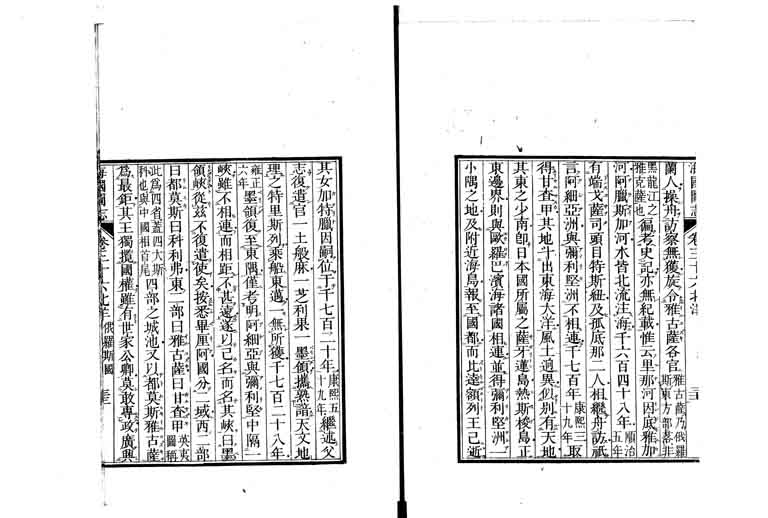 海國圖志 卷三十六 北洋
蘭人操舟訪察無獲旋令雅古薩各官雅古薩乃俄羅斯東方部落非
黑龍江之雅克薩也徧考史記亦無紀載惟云里那河因底雅加
河阿臘斯加河水皆北流注海千六百四十八年順治五年
有端戈薩司頭目特斯紐及孤底那二人相繼舟訪祇
言阿細亞洲與彌利堅洲不相連千七百年康熙三十九年取
得甘查甲其地斗出東海大洋風土逈異似別有天地
其東之少南卽日本國所屬之薩牙蓮島熱斯梭島正
東邊界則與歐羅巴濱海諸國相連並得彌利堅洲一
小隅之地及附近海島報至國都而比達額列王已逝
其女加特臘因嗣位于千七百二十年康熙五十九年繼述父
志復遣官一士般麻一芝利果一墨領攜熟諳天文地
理之特里斯列乘船東邁一無所獲千七百二十八年
雍正六年墨領復至東隅僅考明阿細亞與彌利堅中隔一
峽雖不相連而相距不甚遠遂以己名而名其峽曰墨
領峽從茲不復遣使矣按悉畢厘阿國分二域西二部
曰都莫斯曰科利弗東二部曰雅古薩曰甘查甲英夷圖稱
此爲四省蓋四大斯科也與中國相首尾四部之城池又以都莫斯雅古薩
爲最鉅其王獨攬國權雖有世家公卿莫敢專政廣興
海國圖志 卷三十六 北洋 俄羅斯國